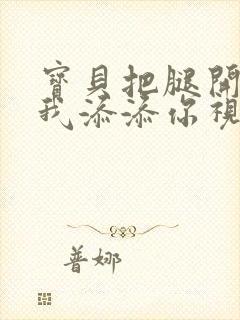 寶貝把腿開
我添添你視
普娜